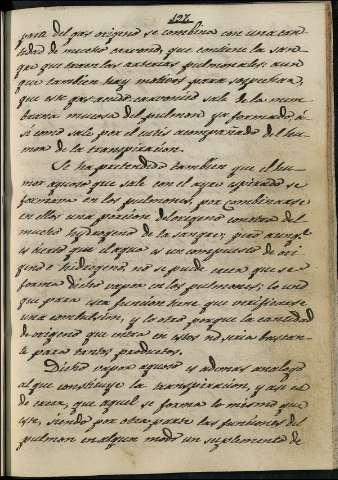 127.
parte del gas origeno se combina con una can
tidad de mucho carvono, que contiene la san
gre que traen las arterias pulmonales: aun
que tambien hay motivos para sospechar,
que este gas acido carvonico sale de la mem
brana mucosa del pulmon ya formado, a
si como sale por el cutis acompañado del hu
mor de la transpiracion.
Se ha pretendido tambien que el hu
mor aquoso que sale con el ayre espirado se
formava en los pulmones, por combinarse
en ellos una porcion de origeno con otra del
mucho hydrogeno de la sangre; pero aunq.e
es cierto que el agua es un compuesto de ori
geno e hidrogeno, no se puede creer que se
forma dicho vapor en los pulmones; lo uno
que para esta funcion tiene que verificarse
una combustion, y lo otro porque la cantidad
de origeno que entra en estos no seria bastan
te para tantos productos.
Dicho vapor aquoso es ademas analogo
al que constituye la transpiracion, y asi es
de creer, que aquel se forma lo mismo que
este, siendo por otra parte las funciones del
pulmon en algun modo un suplemento de